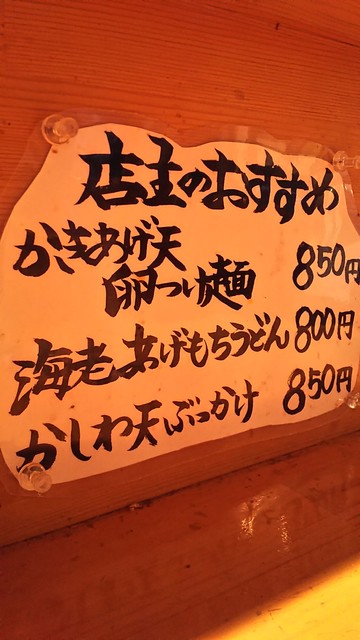 店主のおすすめ
かきあげ天
卵つけ麺 850円
海老あげもちうどん 800円
かしわ天ぶっかけ 850円